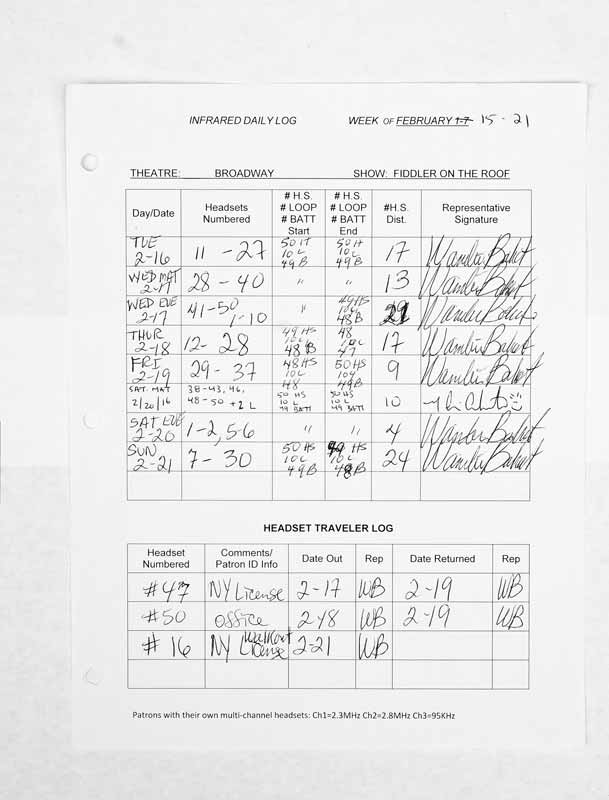 INFRARED DAILY LOG WEEK OF FEBRUARY 17 15 - 21
THEATRE: BROADWAY SHOW: FIDDLER ON THE ROOF
Day/Date Headsets Numbered # H.S. # LOOP # BATT Start # H.S. # LOOP # BATT End #H.S. Dist. Representative Signature
TUE 2-16 11 - 27 50 H 10 L 49 B 50 H 10 L 49 B 17
WED MAT 2-17 28 - 40 " " 13
WED EVE 2-17 41-50 1-10 " 49 HS 10 L 48 B
THUR 2-18 12- 28 49 HS 10 L 48 B 48 10 L 47 17
FRI 2-19 29 - 37 48 HS 10 L 48 50 HS 10 L 49 B 9
SAT. MAT 2/20/16 38-43, 46, 48-50 + 2 L 50 HS 10 L 49 BATT 50 HS 10 L 49 BATT 10
SAT EVE 2-20 1-2, 5-6 " " 4
SUN 2-21 7 - 30 50 HS 10 L 49 B HS 10 L 48 B 24
HEADSET TRAVELER LOG
Headset Numbered Comments/ Patron ID Info Date Out Rep Date Returned Rep
#47 NY License 2-17 WB 2-19 WB
#50 office 2-18 WB 2-19 WB
# 16 NY Walkout License 2-21 WB
Patrons with their own multi-channel headsets: Ch1=2.3MHz Ch2=2.8MHz Ch3=95KHz